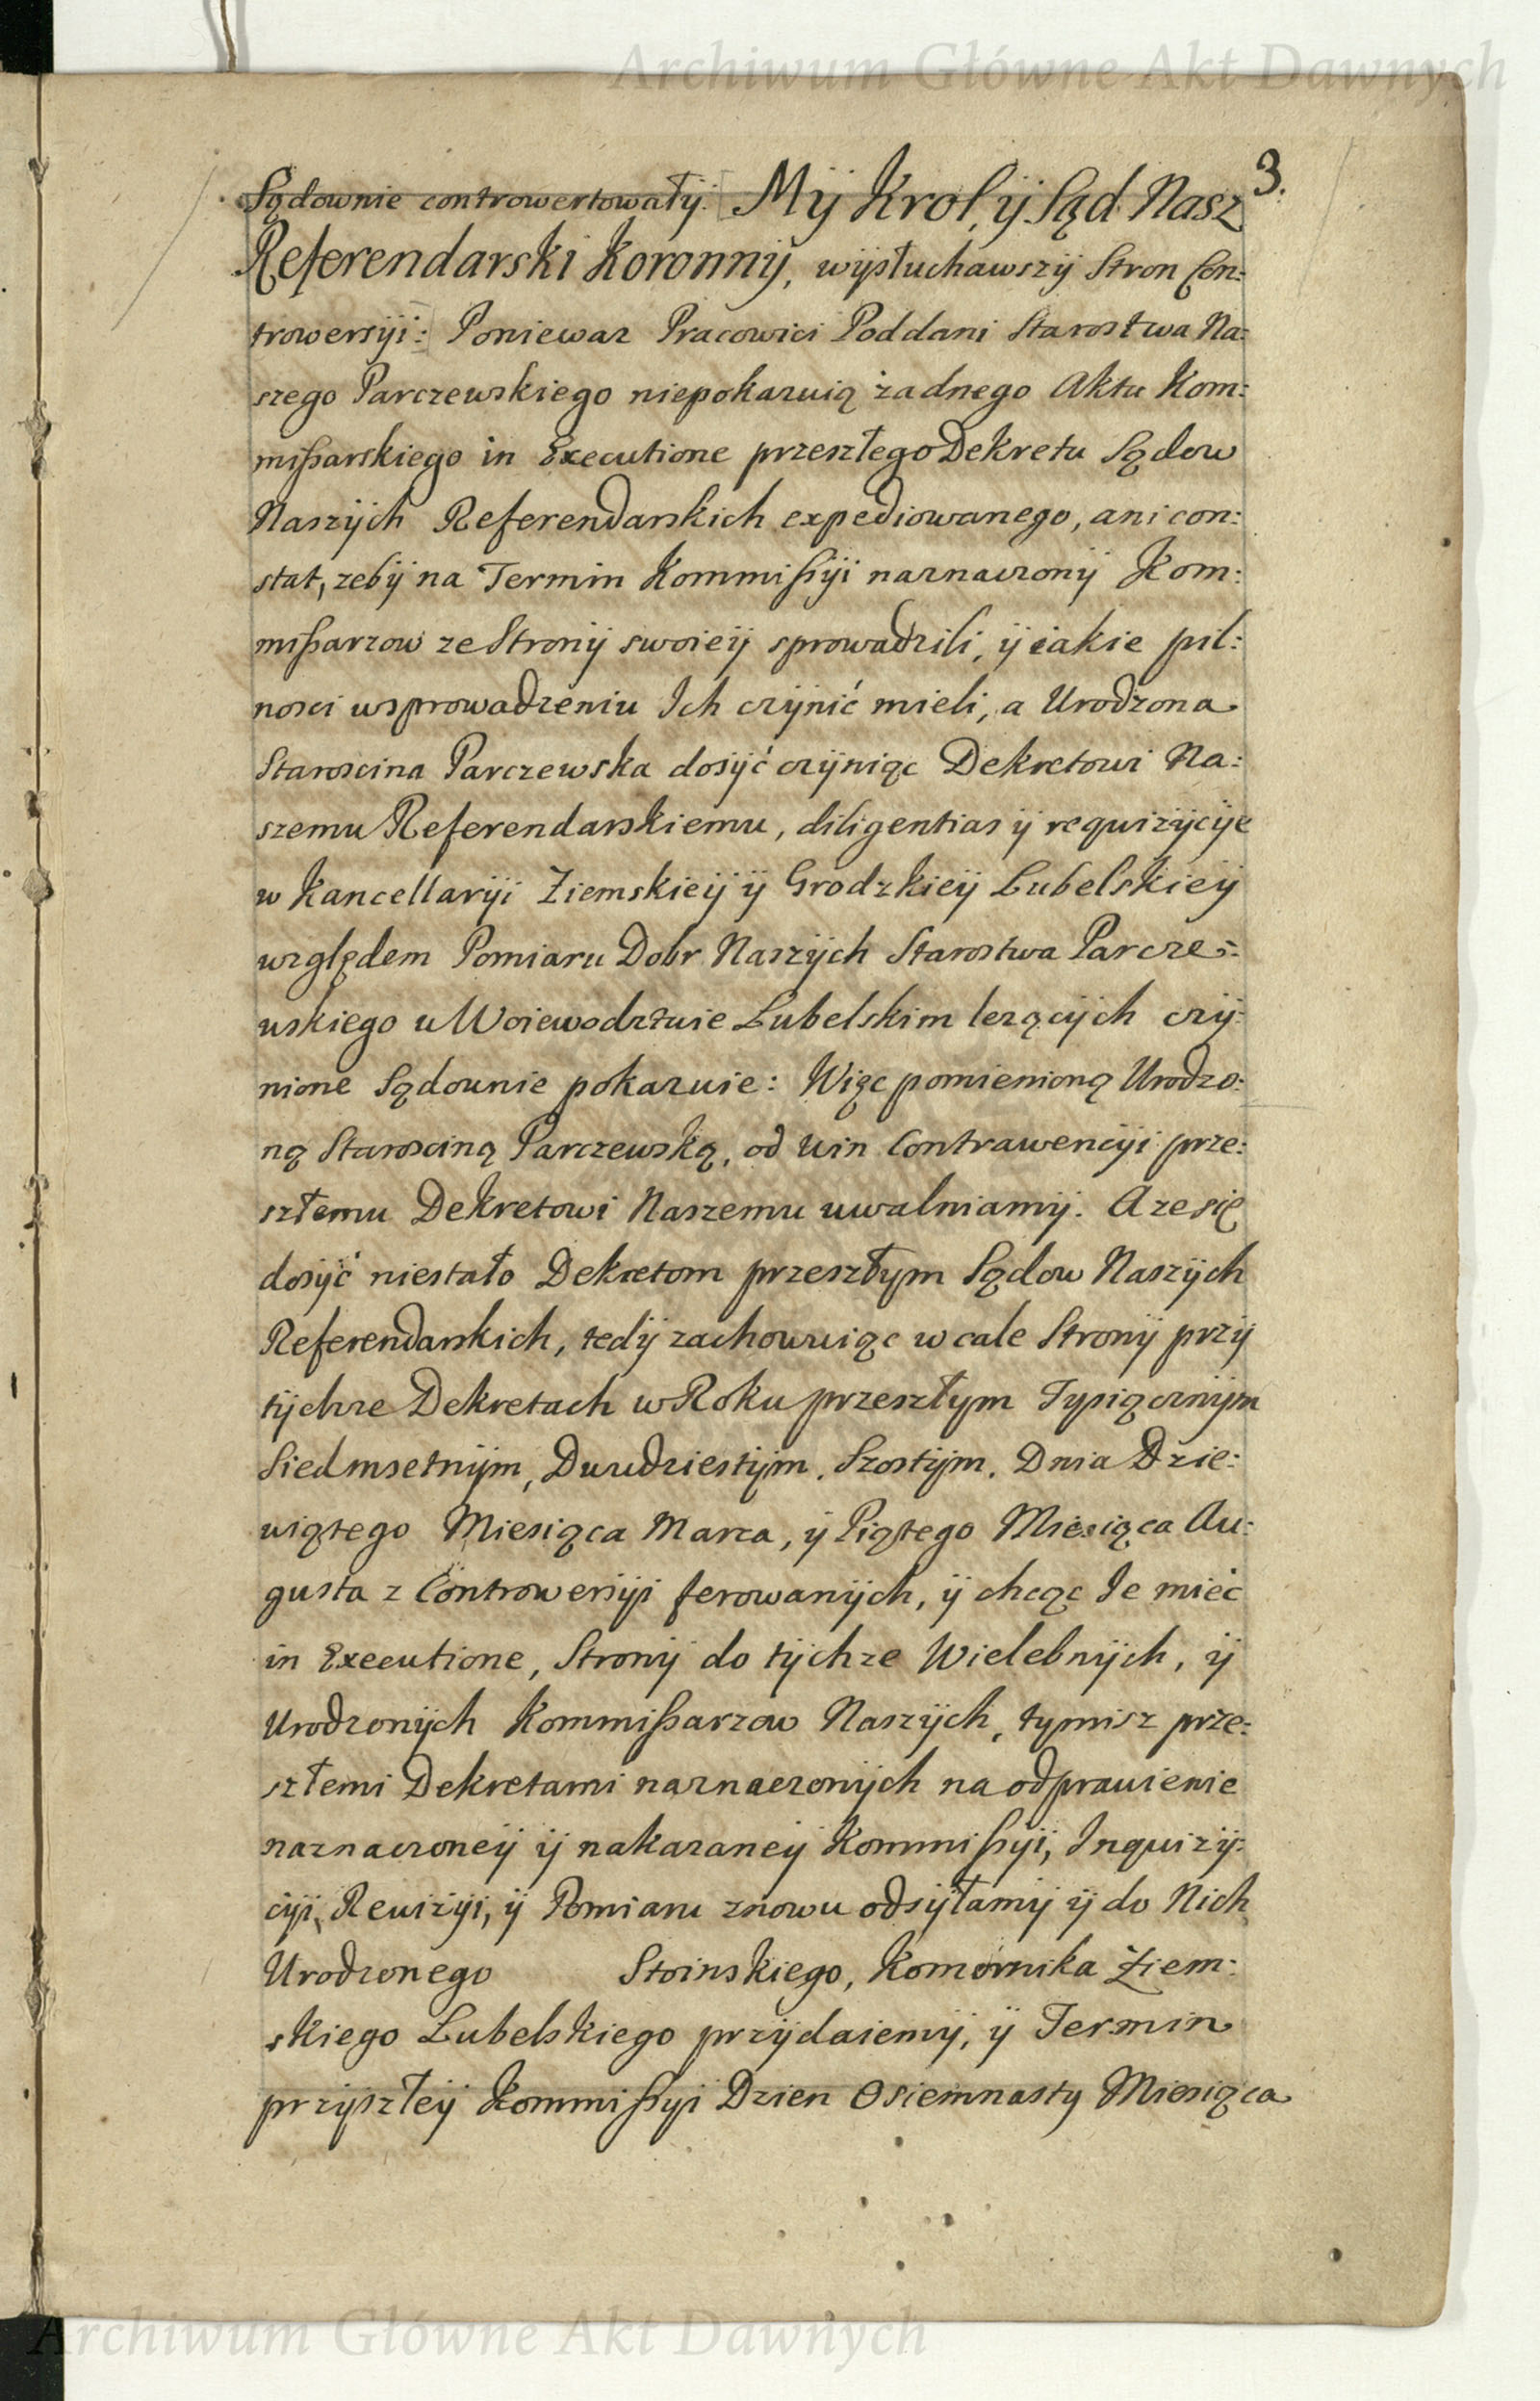 Archiwum Główne Akt Dawnych
3.
Sądownie controwertowały. My Krol, y Sąd Nasz
Referendarski Koronny, wysłuchawszy Stron Con:
trowersyi: Poniewaz Pracowici Poddani Starostwa Na:
szego Parczewskiego niepokazuią żadnego Aktu Kom:
mißarskiego in Executione przeszłego Dekretu Sądow
Naszych Referendarskich expediowanego, ani con:
stat, zeby na Termin Kommißyi naznaczony Kom:
mißarzow ze Strony swoiey sprowadzili, y iakie pil:
nosci wsprowadzeniu Ich czynić mieli, a Urodzona
Staroscina Parczewska dosyć czyniąc Dekretowi Na:
szemu Referendarskiemu, diligentias y requizycye
w Kancellaryi Ziemskiey y Grodzkiey Lubelskiey
względem Pomiaru Dobr Naszych Starostwa Parcze:
wskiego w Woiewodztwie Lubelskim lezących czy:
nione Sądownie pokazuie: Więc pomienioną Urodzo:
ną Starosciną Parczewską, od win Contrawencyi prze:
szłemu Dekretowi Naszemu uwalniamy. A ze się
dosyć niestało Dekretom przeszłym Sądow Naszych
Referendarskich, tedy zachowuiąc w cale Strony przy
tychze Dekretach w Roku przeszłym Tysiącznym
Siedmsetnym, Dwudziestym, Szostym, Dnia Dzie:
wiątego Miesiąca Marca, y Piątego Miesiąca Au:
gusta z Controwersyi ferowanych, y chcąc Je mieć
in Executione, Strony do tychze Wielebnych, y
Urodzonych Kommißarzow Naszych, tymisz prze:
szłemi Dekretami naznaczonych na odprawienie
naznaczoney y nakazaney Kommißyi, Inquizy:
cyi, Rewizyi, y Pomiaru znowu odsyłamy y do Nich
Urodzonego Stoinskiego, Komornika Ziem:
skiego Lubelskiego przydaiemy, y Termin
przyszłey Kommißyi Dzien Osiemnasty Miesiąca
Archiwum Główne Akt Dawnych